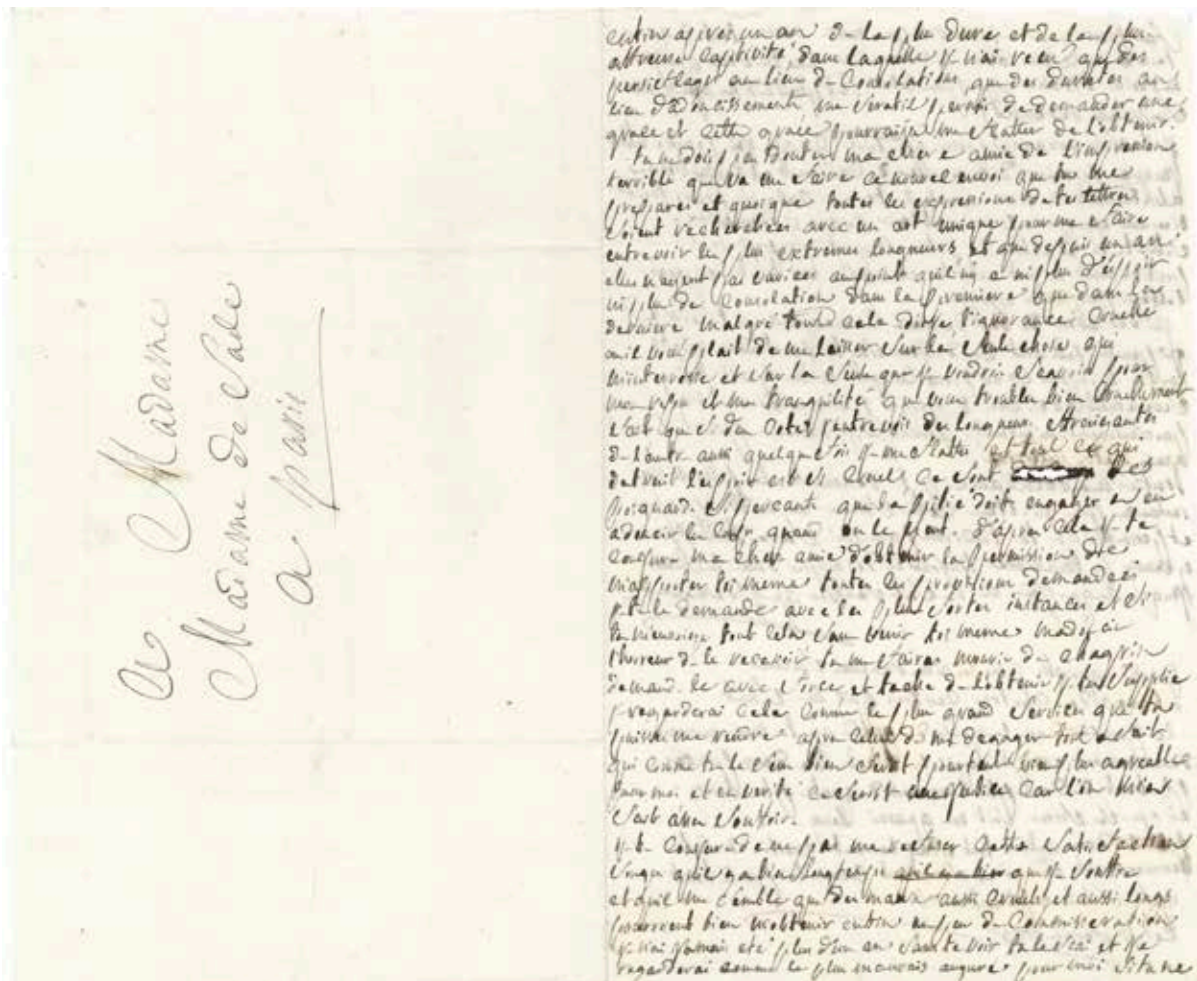 A Madame
Madame de Sade
a paris
enfin apres un an de la plus dure et de la plus
affreuse captivité, dans laquelle je n'ai recu que des
persiflages au lieu de consolations, que des duretés au
lieu d'adoucissements me serat il permis de demander une
grace et cette grace pourraije me flatter de l'obtenir.
tu ne dois pas douter ma chere amie de l'impression
terrible que va me faire ce nouvel envoi que tu me
prepares et quoique toutes les expressions de tes lettres
soient recherchées avec un art unique pour me faire
entrevoir les plus extremes longueurs et que depuis un an
elles n'aient pas variées au point qu'il n'y a ni plus d'espoir
ni plus de consolation dans la premiere que dans la
derniere malgré tout cela dis je l'ignorance cruelle
ou il vous plait de me laisser sur la seule chose qui
m'interresse et sur la seule que je voudrois scavoir pour
mon repos et ma tranquilité que vous troublez bien cruellement
fait que si d'un coté j'entrevois des longueurs
de l'autre aussi quelque fois je me flatte et tout ce qui
detruit l'espoir est si cruel ce sont des
poignards si percants que la pitié doit engager a en
adoucir les coups quand on le peut. d'apres cela je te
conjure ma chere amie d'obtenir la permission de
m'apporter toi meme toutes les provisions demandées
je te le demande avec les plus fortes instances et si
tu m'envoies tout cela sans venir toi meme
l'horreur de le recevoir tu me feras mourir de chagrin
demande le avec force et tache de l'obtenir je t'en supplie
je regarderai cela comme le plus grand service que tu
puisse me rendre apres celui de me degager tout a fait
qui comme tu le sens bien seroit pourtant bien plus agreable
pour moi et en verité ce seroit une justice car l'on m'a bien
fait assez souffrir.
je te conjure de ne pas me refuser cette satisfaction
songe qu'il y a bien longtemps que je souffre
et qu'il me semble que des maux aussi cruels et aussi longs
pourroient bien m'obtenir enfin un peu de commiseration
je n'ai jamais eté plus d'un an sans te voir tu le scai et je
regarderai comme le plus mauvais augure pour moi si tu ne